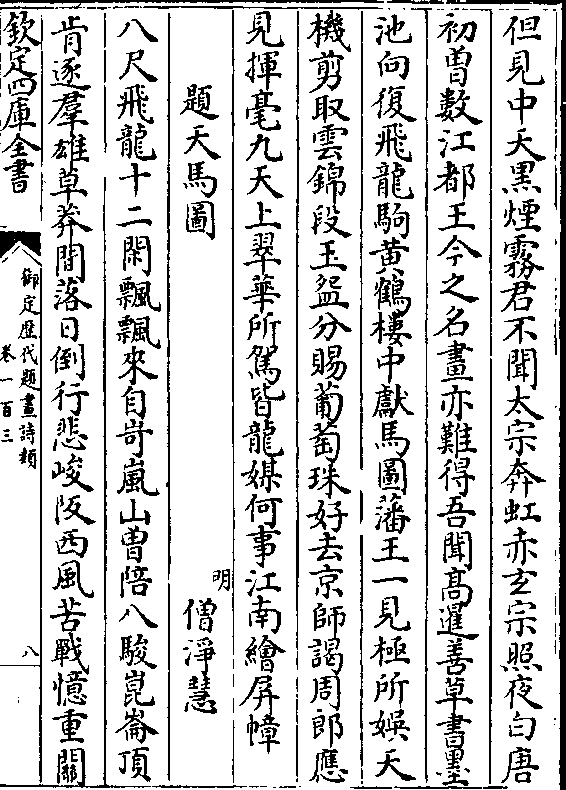 但見中天黑煙霧君不聞太宗奔虹赤玄宗照夜白唐
初曽數江都王今之名畫亦難得吾聞髙暹善草書墨
池向復飛龍駒黄鶴樓中獻馬圖藩王一見極所娯天
機剪取雲錦段玉盌分賜葡萄珠好去京師謁周郎應
見揮毫九天上翠華所駕皆龍媒何事江南繪屏幛
題天馬圖
明 僧淨慧
八尺飛龍十二閑飄飄來自岢嵐山曽陪八駿崑崙頂
肯逐羣雄草莽間落日倒行悲峻阪西風苦戰憶重關
欽定四庫全書
御定歴代題畫詩類
卷一百三
八